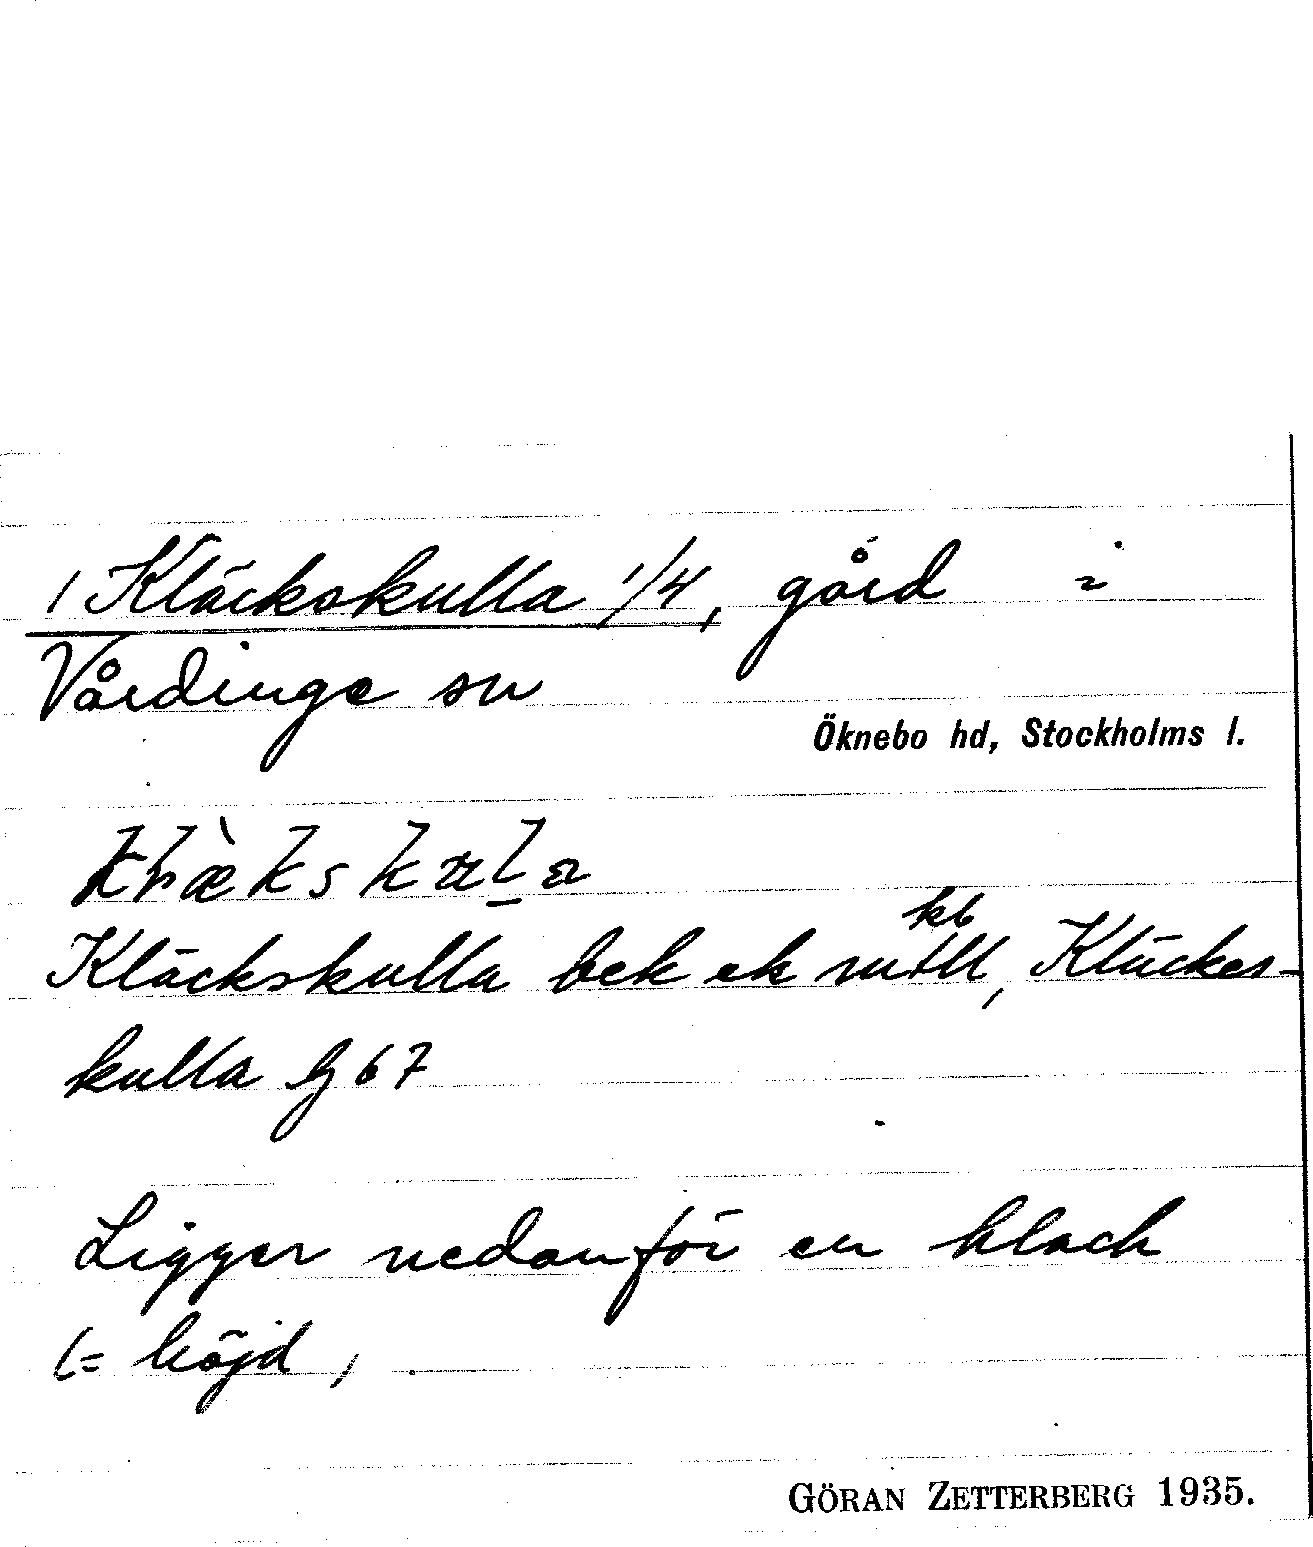 1 Kläckskulla 1/4, gård i
Vårdinge sn
Öknebo hd, Stockholms l.
Kläckskulla bek ek mtll, Kläckes-
kulla Lj 67
Ligger nedanför en klack
(= höjd)
GÖRAN ZETTERBERG 1935.